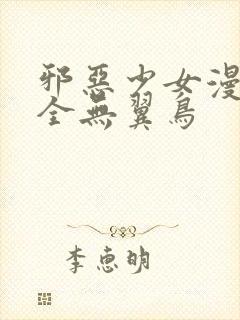 邪惡少女漫
全無翼鳥
李惠明